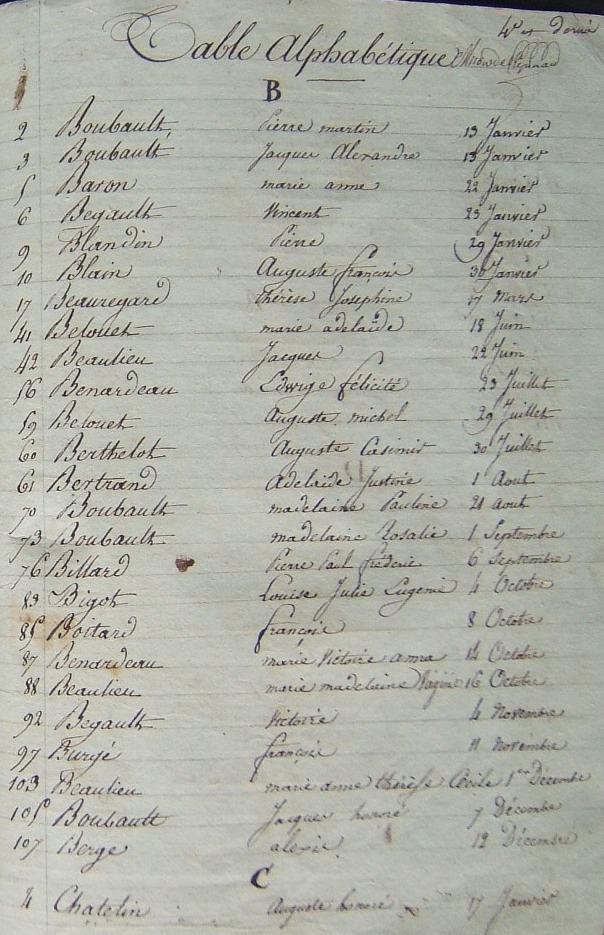 4e et dernier
Table Alphabétique
B
2 Boubault, Pierre martin 13 Janvier
3 Boubault Jacques Alexandre 13 Janvier
5 Baron marie anne 22 Janvier
6 Begault Vincent 23 Janvier
9 Blandin Pierre 29 Janvier
10 Blain Auguste françois 30 Janvier
17 Beauregard thérèse Josephine 17 mars
41 Belouet marie adelaïde 18 Juin
42 Beaulieu Jacques 22 Juin
56 Benardeau Edwige félicité 23 Juillet
59 Belouet Auguste michel 29 Juillet
60 Berthelot Auguste Casimir 30 Juillet
61 Bertrand Adelaïde Justine 1 Aout
70 Boubault madelaine Pauline 21 aout
73 Boubault madelaine Rosalie 1 Septembre
76 Billard Pierre Paul fréderic 6 Septembre
83 Bigot Louise Julie Eugenie 4 Octobre
85 Boitard françois 8 Octobre
87 Benardeau marie Victoire anna 14 Octobre
88 Beaulieu marie madelaine 16 Octobre
92 Begault Victoire 4 Novembre
97 Burgé françois 11 novembre
103 Beaulieu marie anne thérèse Cécile 1er Décembre
105 Boubault Jacques honoré 7 Décembre
107 Berge alexis 12 Décembre
C
4 Chatelin Auguste honoré 17 Janvier